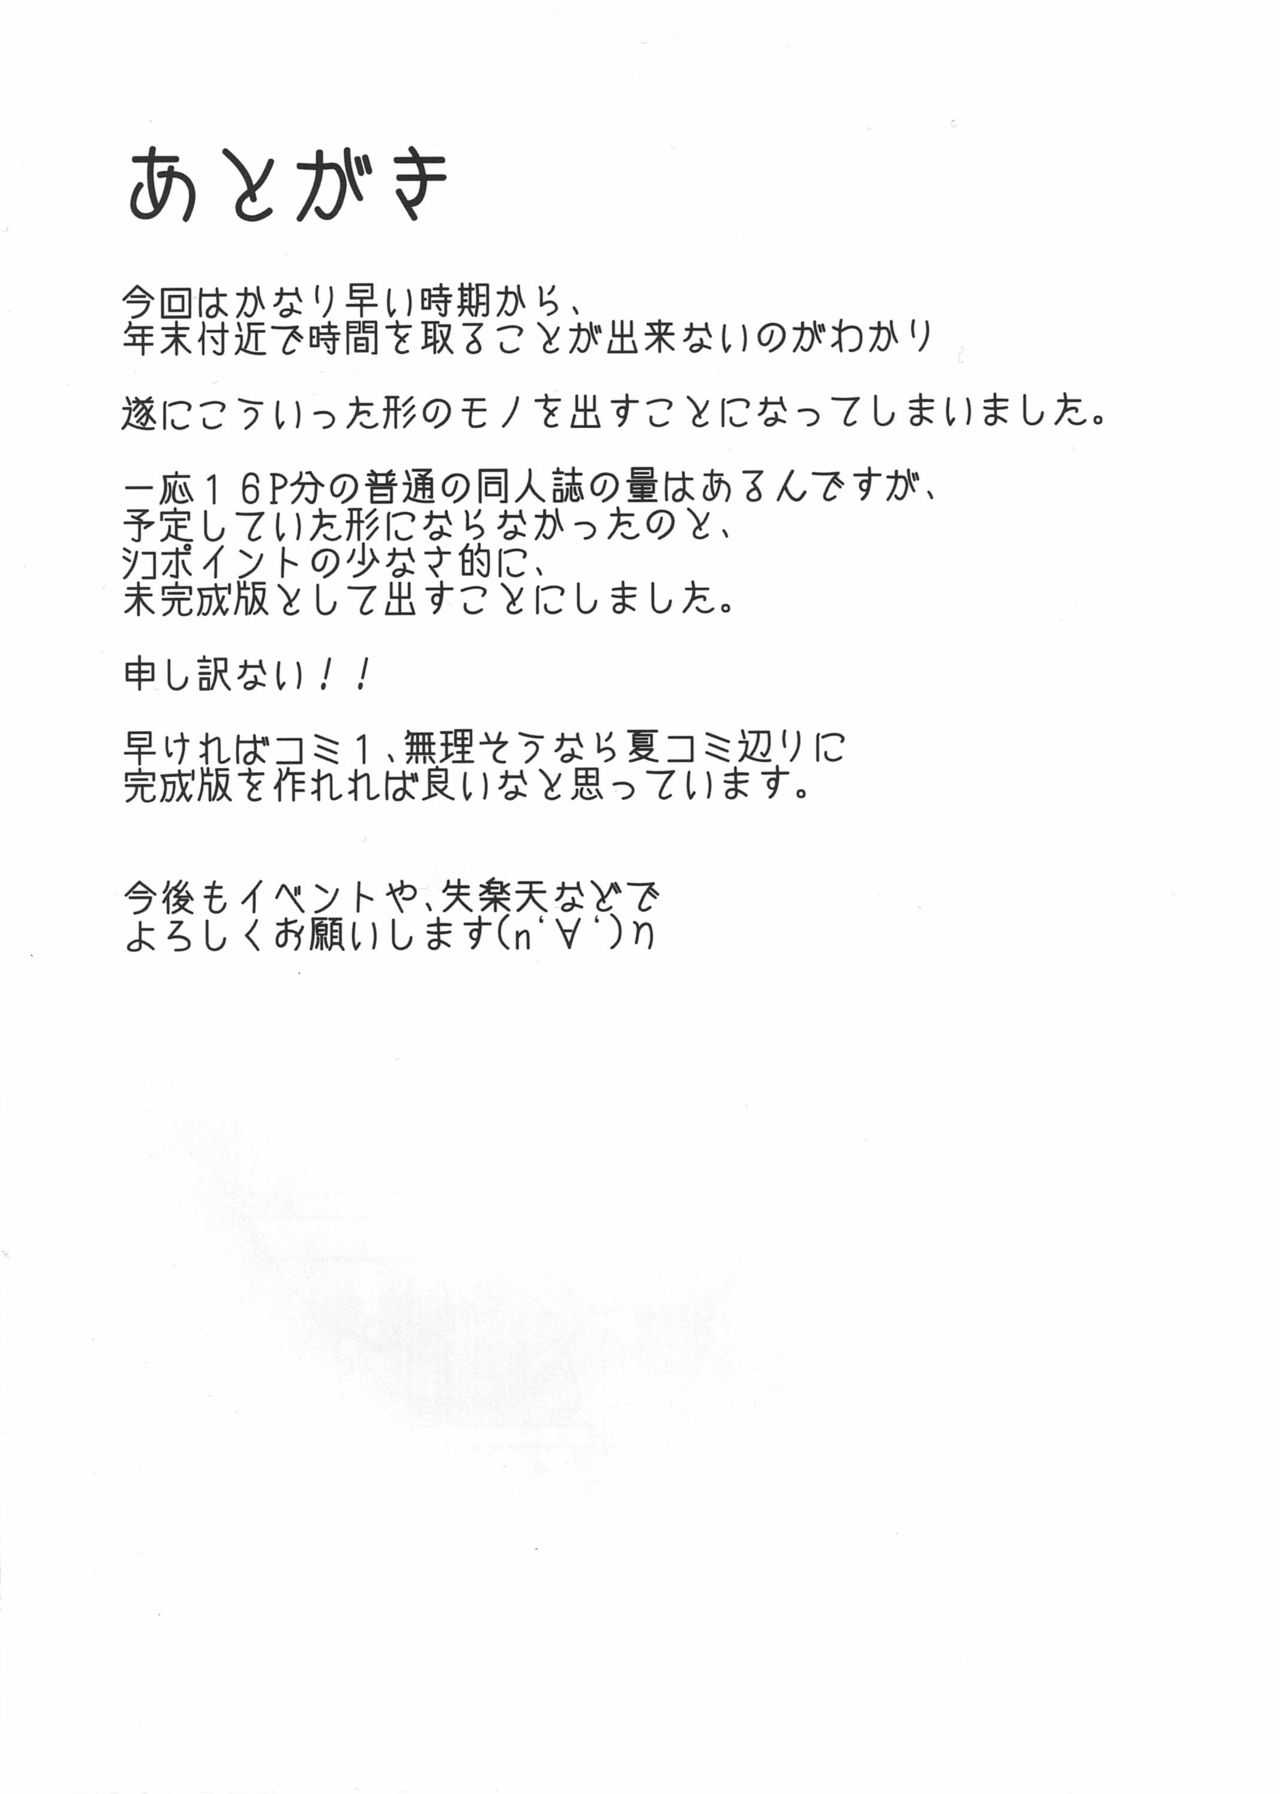 あとがき
今回はかなり早い時期から、
年末付近で時間を取ることが出来ないのがわかり
遂にこういった形のモノを出すことになってしまいました。
一応１６P分の普通の同人誌の量はあるんですが、
予定していた形にならなかったのと、
ｼｺポイントの少なさ的に、
未完成版として出すことにしました。
申し訳ない！！
早ければコミ１、無理そうなら夏コミ辺りに
完成版を作れれば良いなと思っています。
今後もイベントや、失楽天などで
よろしくお願いします(n‘∀‘)η